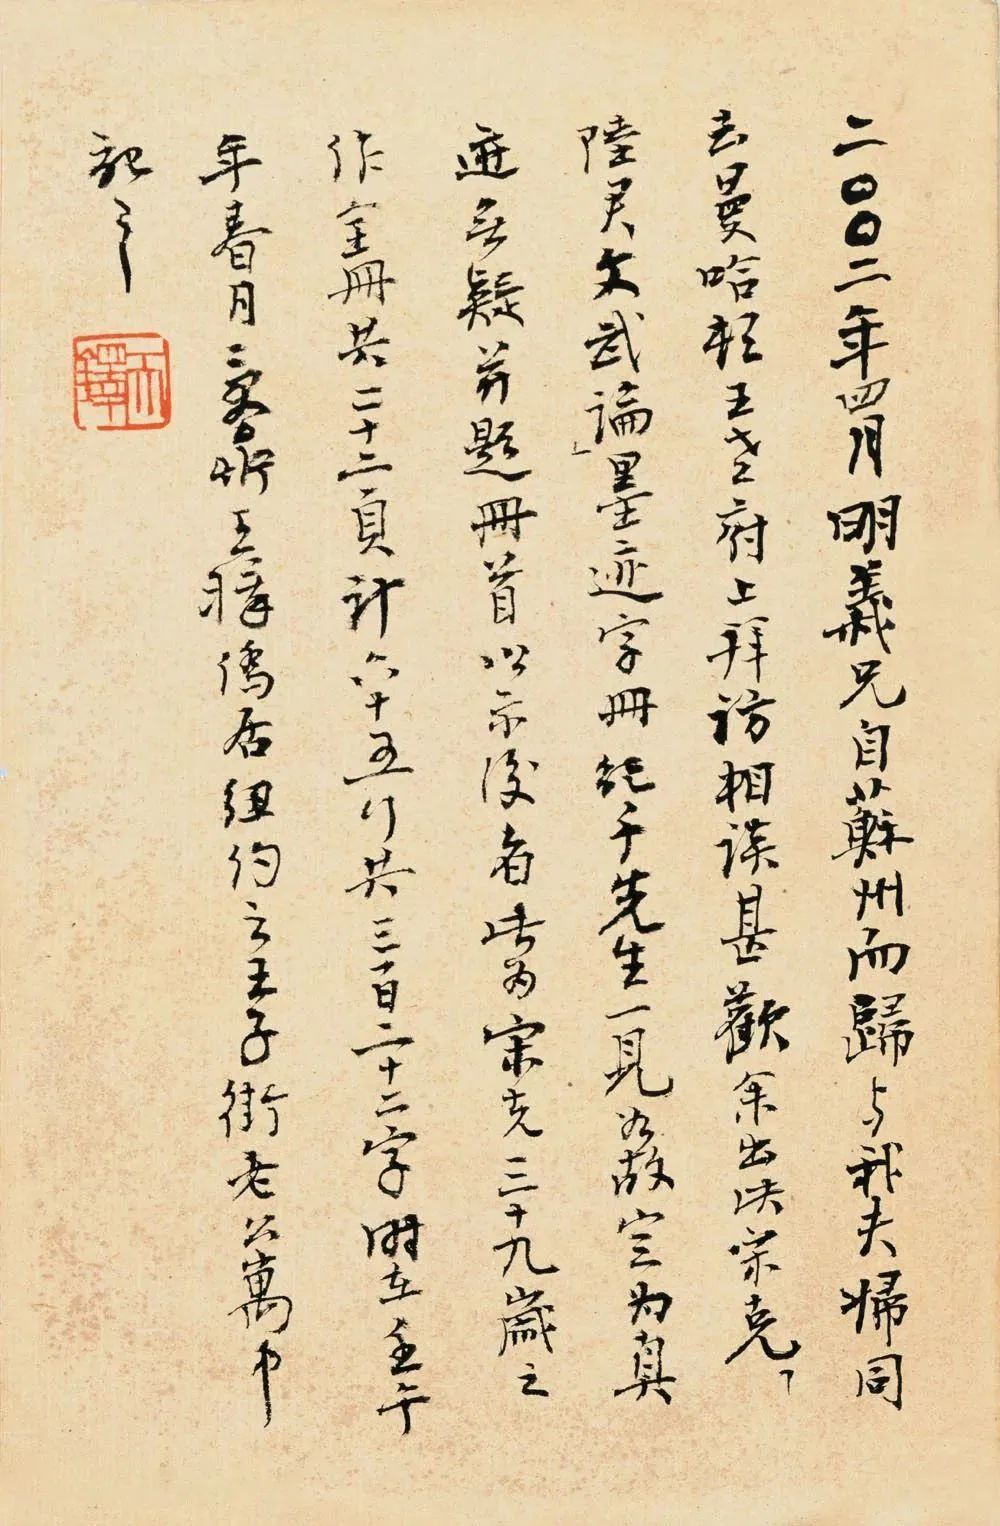 二〇〇二年四月明義兄自蘇州而歸与我夫婦同
去曼哈頓王老府上拜訪相談甚歡余出決宋克「
陸君文武論」墨迹字冊紀千先生一見如故定为真
迹無疑并題冊首以示後者此为宋克三十九歲之
作全冊共二十二頁計六十五行共三百二十二字時在壬午
年春月 王擇僑居紐約之王子街老公寓中
記之